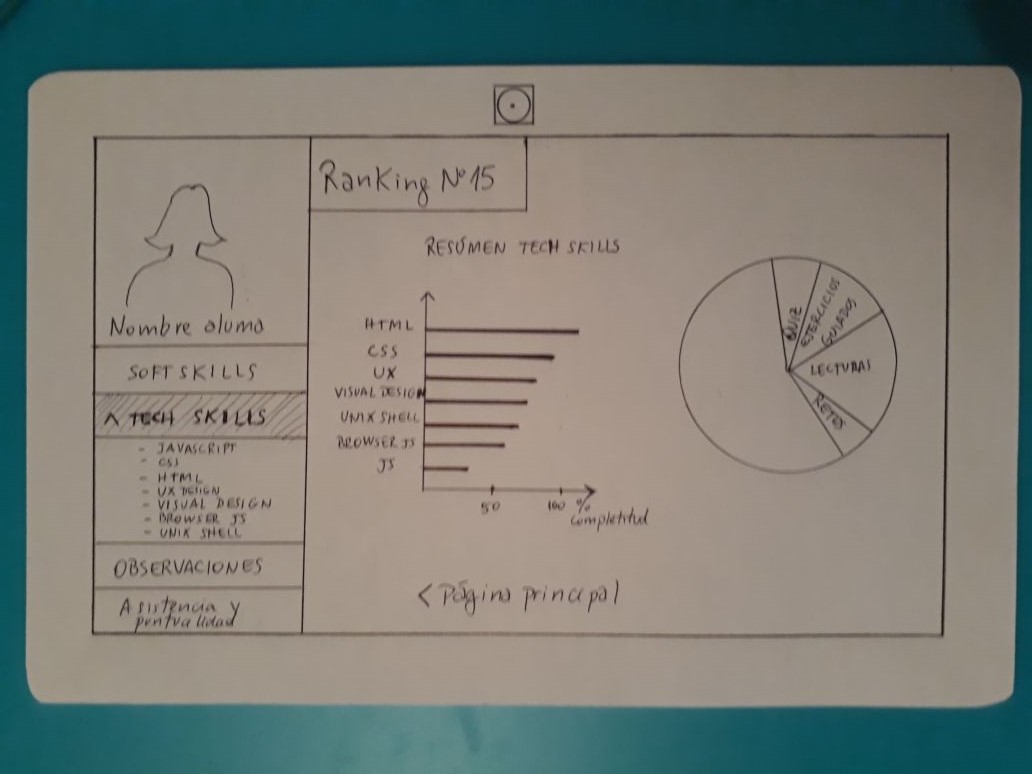 Ranking Nº15
Nombre alumo
SOFT SKILLS
^ TECH SKILLS
- JAVASCRIPT
- CSS
- HTML
- UX DESIGN
- VISUAL DESIGN
- BROWSER JS
- UNIX SHELL
OBSERVACIONES
Asistencia y
puntualidad
RESÚMEN TECH SKILLS
HTML
CSS
UX
VISUAL DESIGN
UNIX SHELL
BROWSER JS
JS
50
100
%
Completitud
QUIZ
EJERCICIOS
GUIADOS
LECTURAS
RETOS
< Página principal